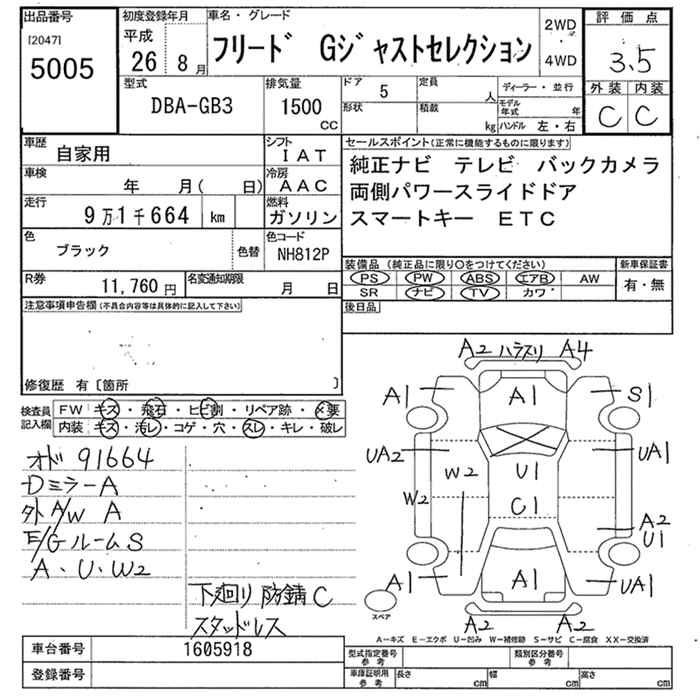 出品番号
[2047]
5005
初度登録年月
平成
26 8月
車名・グレード
フリード Gジャストセレクション
2WD
・
4WD
評価点
3.5
外装 内装
C C
型式
DBA-GB3
排気量
1500
CC
ドア 5
形状
定員 人
積載 kg
ディーラー・並行
モデル年式 年
ハンドル 左・右
車歴
自家用
シフト
IAT
車検
年 月( 日)
冷房
AAC
走行
9万1千664 km
燃料
ガソリン
色
ブラック
色替
色コード
NH812P
R券
11,760円
名変通知期限
月 日
セールスポイント(正常に機能するものに限ります)
純正ナビ テレビ バックカメラ
両側パワースライドドア
スマートキー ETC
装備品(純正品に限り〇をつけてください)
PS PW ABS エアB AW
SR ナビ TV カワ
新車保証書
有・無
後日品
注意事項申告欄(不具合内容等は具体的に記入して下さい)
修復歴 有〔箇所 〕
検査員
記入欄
FW キズ・飛石・ヒビ割・リペア跡・〆要
内装 キズ・汚レ・コゲ・穴・スレ・キレ・破レ
オド 91664
Dミラー A
外 A/W A
E/Gルーム S
A・U・W2
下廻り 防錆 C
スタッドレス
A2 ハラスリ A4
A1 A1 S1
UA2 W2 U1 UA1
W2 C1 A2
U1
A1 A1 UA1
A2 A2
スペア
A-キズ E-エクボ U-凹み W-補修跡 S-サビ C-腐食 XX-交換済
車台番号 1605918
登録番号
型式指定番号
参考
類別区分番号
参考
車庫証明用
参考
長さ cm 幅 cm 高さ cm